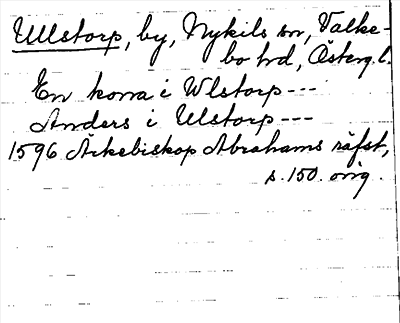 Ullstorp, by, Nykils sn, Valke-
bo hd, Österg. l.
En kona i Wlstorp ---
Anders i Ulstorp ---
1596 Ärkebiskop Abrahams räfst,
s. 150. orig.